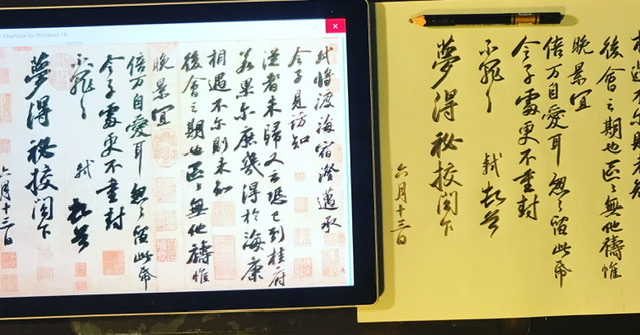 OneNote for Windows 10
軾將渡海宿澄邁承
令子見訪知
從者未歸又云恐已到桂府
若果爾庶幾得於海康
相遇不爾則未知
後會之期也區區無他禱惟
晚景宜
倍万自愛耳忽忽留此帋
令子處更不重封
不罪〻 軾 頓首
夢得秘校閣下
六月十三日
相遇不爾則未知
後會之期也區區無他禱惟
晚景宜
倍万自愛耳忽忽留此帋
令子處更不重封
不罪〻 軾 頓首
夢得秘校閣下
六月十三日